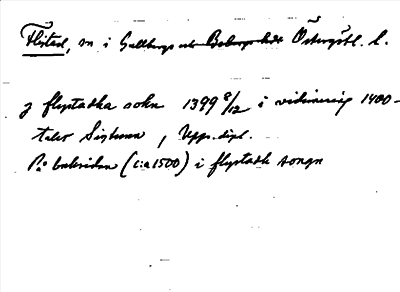 Flistad, sn i Gullbergs och Bobergs hd Östergötl. l.
j flystadha sokn 1399 8/12 i vidimering 1400-
talet Sjuttunna, Upps. dipl.
På baksidan (c:a 1500) i flystadh songn